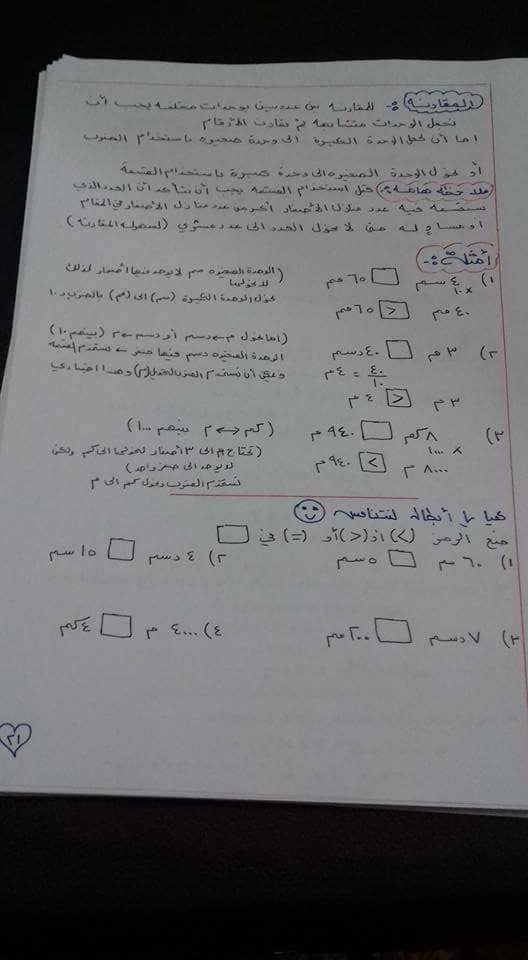 المقارنة :- للمقارنة بين عددين بوحدات مختلفة يجب أن
نجعل الوحدات متشابهة ثم نقارن الأرقام
إما أن نحول الوحدة الكبيرة إلى وحدة صغيرة باستخدام الضرب
أو نحول الوحدة الصغيرة إلى وحدة كبيرة باستخدام القسمة
ملاحظة هامة :- قبل استخدام القسمة يجب أن نتأكد أن العدد الذي
سنقسمه فيه عدد منازل الأصفار أكبر من عدد منازل الأصفار في المقام
أو مساوٍ له حتى لا يحول العدد إلى عدد عشري (لسهولة المقارنة)
أمثلة :-
١) ٤ سم □ ٦٥ مم (الوحدة الصغيرة مم لا يوجد فيها أصفار لذلك لا نحولها
١٠×
٤٠ مم > ٦٥ مم نحول الوحدة الكبيرة (سم) إلى (مم) بالضرب ×١٠
٢) ٣ م □ ٤٠ دسم (إما نحول م ← دسم أو دسم ← م (بينهم ١٠)
٤٠/١٠ = ٤ م الوحدة الصغيرة دسم فيها صفر ← نستخدم القسمة
٣ م > ٤ م ويمكن أن نستخدم الضرب وهذا اختياري
٣) ٨ كم □ ٩٤٠ م (كم ↔ م بينهم ١٠٠٠)
١٠٠٠ × (نحتاج إلى ٣ أصفار لنحولها إلى كم ولكن
٨٠٠٠ م < ٩٤٠ م لا يوجد إلا صفر واحد)
نستخدم الضرب ونحول كم إلى م
هيا يا أبطال لنتنافس
ضع الرمز (<) أو (>) أو (=) في □
١) ٦٠ مم □ ٥ سم ٢) ٤ دسم □ ١٥ سم
٣) ٧ دسم □ ٢٠٠ مم ٤) ٤٠٠٠ م □ ٤ كم
٢١